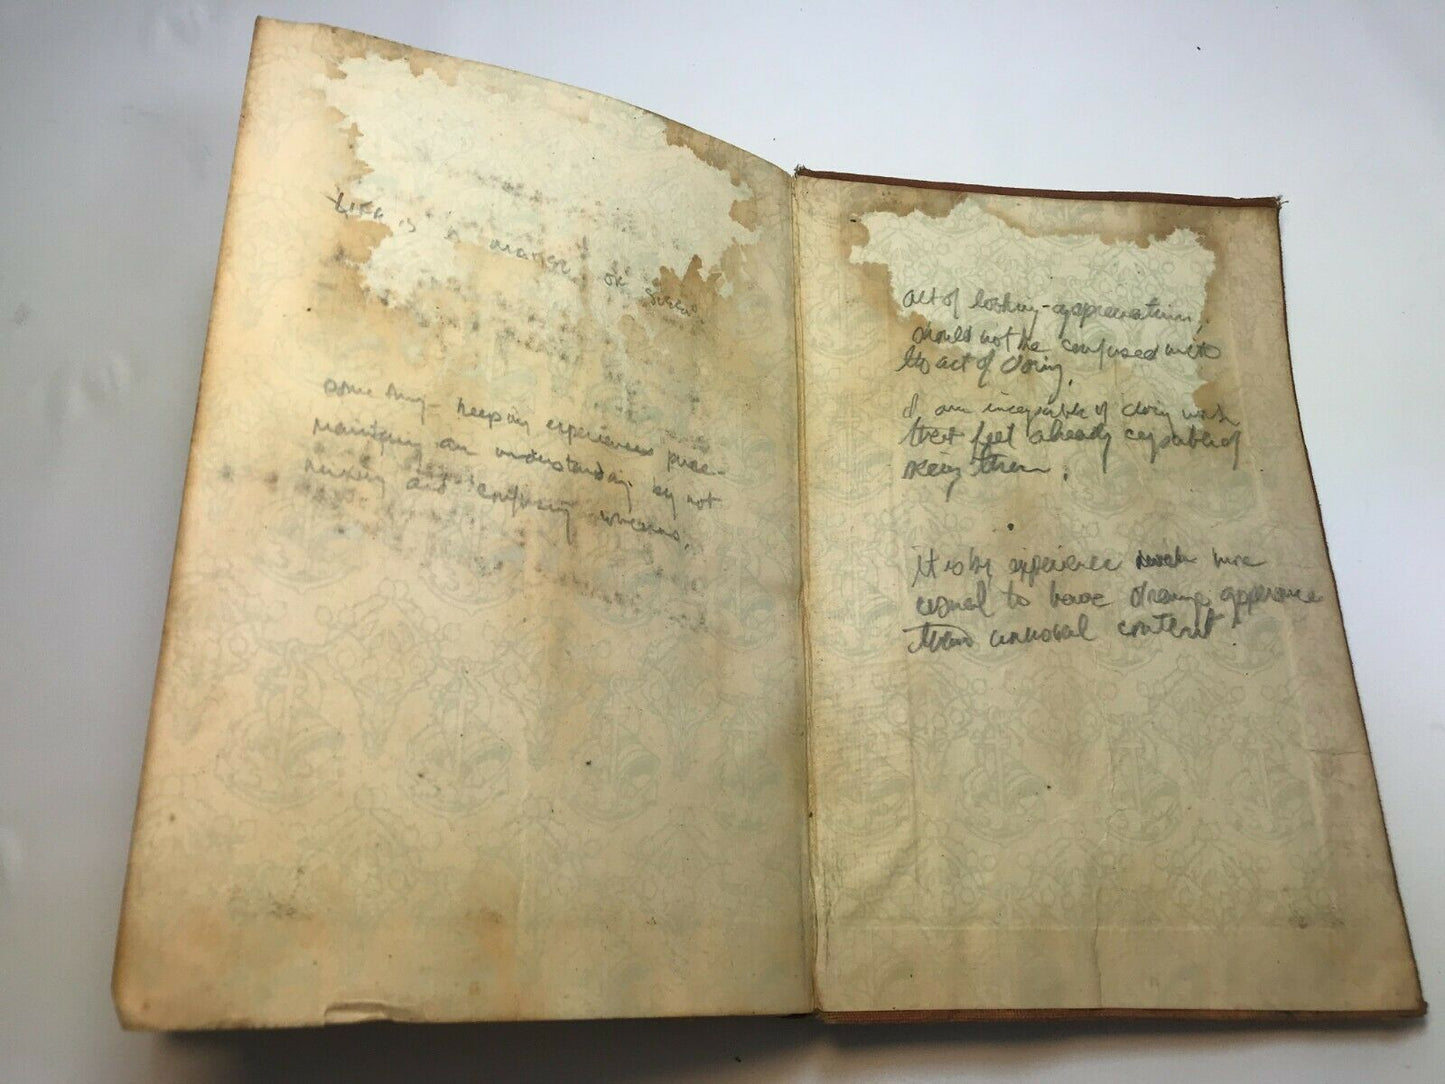 Life is a matter of
something - keeping experiences pure -
maintaining an understanding by not
mixing and confusing
act of looking - appreciation,
should not be confused with
the act of doing.
I am incapable of doing
that feel already capable of
seeing them.
it is by experience more
usual to have strange appearance
than unusual content.